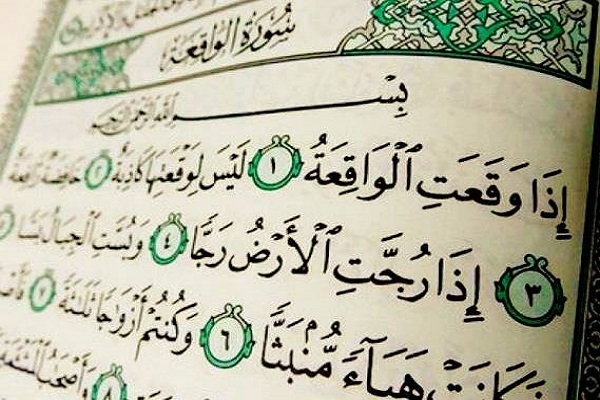 سُورَةُ الوَاقِعَة
بِسْمِ ٱللَّهِ ٱلرَّحْمَٰنِ ٱلرَّحِيمِ
إِذَا وَقَعَتِ ٱلْوَاقِعَةُ ١ لَيْسَ لِوَقْعَتِهَا كَاذِبَةٌ ٢ خَافِضَةٌ رَّافِعَةٌ
٣ إِذَا رُجَّتِ ٱلْأَرْضُ رَجًّا ٤ وَبُسَّتِ ٱلْجِبَالُ بَسًّا
فَكَانَتْ هَبَآءً مُّنۢبَثًّا ٦ وَكُنتُمْ أَزْوَاجًا ثَلَٰثَةً ٧
٨ وَأَصْحَٰبُ